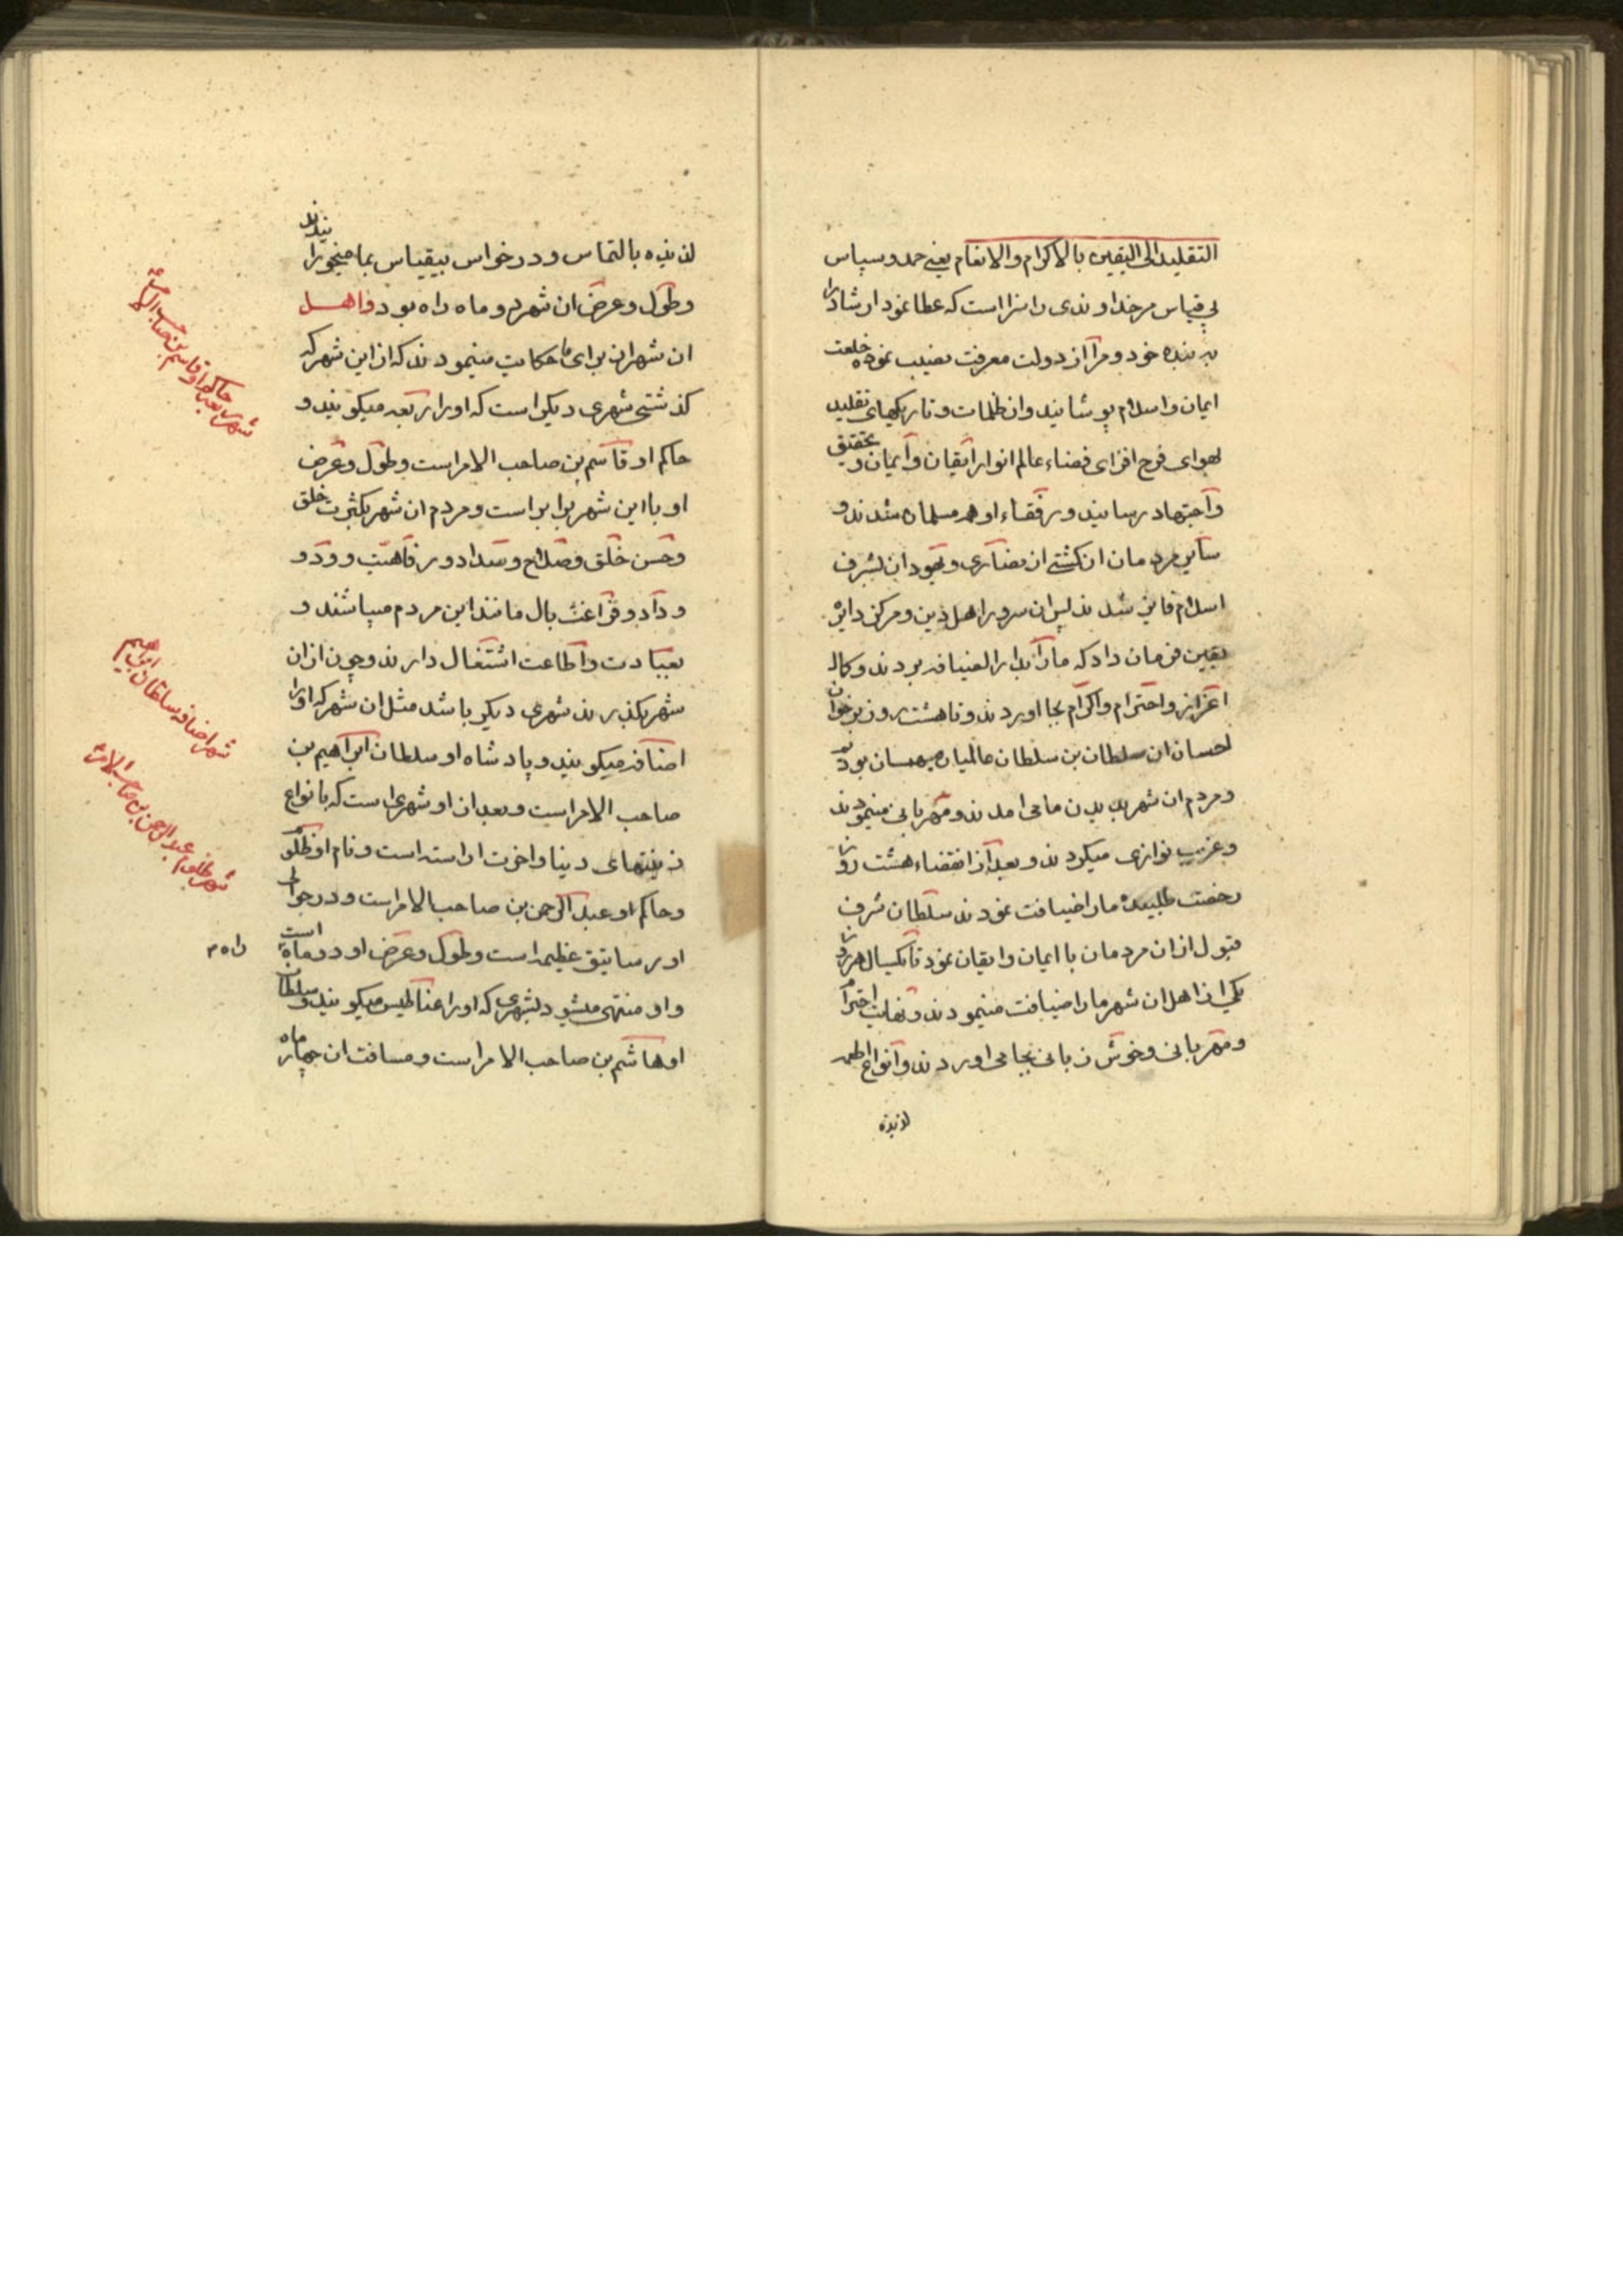 التقلید الی الیقین بالاکرام والانعام یعنے حمد و سپاس
بی قیاس مر خداوندی را سزا است که عطا نمود ارشاد را
به بنده خود و مرا از دولت معرفت نصیب نموده خلعت
ایمان و اسلام پوشانید و از ظلمات و تاریکهای تقلید
بهوای فرح افزای فضاء عالم انوار ایقان و ایمان و تحقیق
و اجتهاد رسانید و رفقاء او هم مسلمان شدند و
سایر مردمان ان کشتے از نصاری و یهود ان بشرف
اسلام فایز شدند پس ان سرور اهل دین و مرکز دایره
یقین فرمان داد که ما را بدار الضیافه بردند و کمال
اعزاز و احترام و اکرام بجا اوردند و تا هشت روز بر خوان
احسان ان سلطان بن سلطان عالمیان میهمان بودیم
و مردم ان شهر بدیدن ما می امدند و مهربانی مینمودند
و غریب نوازی میکردند و بعد از انقضاء هشت روز
رخصت طلبیده ما را ضیافت نمودند سلطان شرف
قبول از ان مردمان با ایمان و ایقان نمود تا یکسال هر روز
یکی از اهل ان شهر ما را ضیافت مینمودند و نهایت احترام
و مهربانی و خوش زبانی بجا می اوردند و انواع اطعمه
لذیذه
لذیذه بالتماس و درخواس بیقیاس بما میخورانیدند
و طول و عرض ان شهر دو ماه راه بود و اهل
ان شهر از برای ما حکایت مینمودند که از این شهر که
گذشتی شهری دیگر است که او را رایقه میگویند و
حاکم او قاسم بن صاحب الامر است و طول و عرض
او با این شهر برابر است و مردم ان شهر بکثرت خلق
و حسن خلق و صلاح و سداد و رفاهیت و ود و
وداد و فراغت بال مانند این مردم میباشند و
بعبادت و اطاعت اشتغال دارند و چون از ان
شهر بگذرند شهری دیگر باشد مثل ان شهر که او را
اصنافه میگویند و پادشاه او سلطان ابراهیم بن
صاحب الامر است و بعد از او شهری است که بانواع
زینتهای دنیا و اخرت اراسته است و نام او ظلوم
و حاکم او عبد الرحمن بن صاحب الامر است و در حوالی
او رساتیق عظیمه است و طول و عرض او دو ماهه است
راه
و او منتهی میشود بشهری که او را عناطیس میگویند و سلطان
او هاشم بن صاحب الامر است و مسافت ان چهار ماه
شهر رایقه حاکم او قاسم بن صاحب الامر
شهر اصنافه سلطان ابراهیم
شهر ظلوم عبد الرحمن بن صاحب الامر